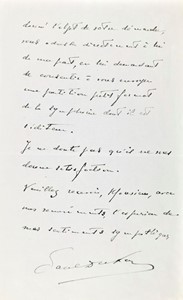 dans l'objet de votre demande,
vous adresser directement à lui
de ma part, en lui demandant
de consentir à vous envoyer
une partition petit format
de la symphonie dont il est
l'éditeur.
Je ne doute pas qu'il ne vous
donne satisfaction.
Veuillez recevoir, Monsieur, avec
mes remerciements, l'expression de
mes sentiments sympathiques
Paul Dukas